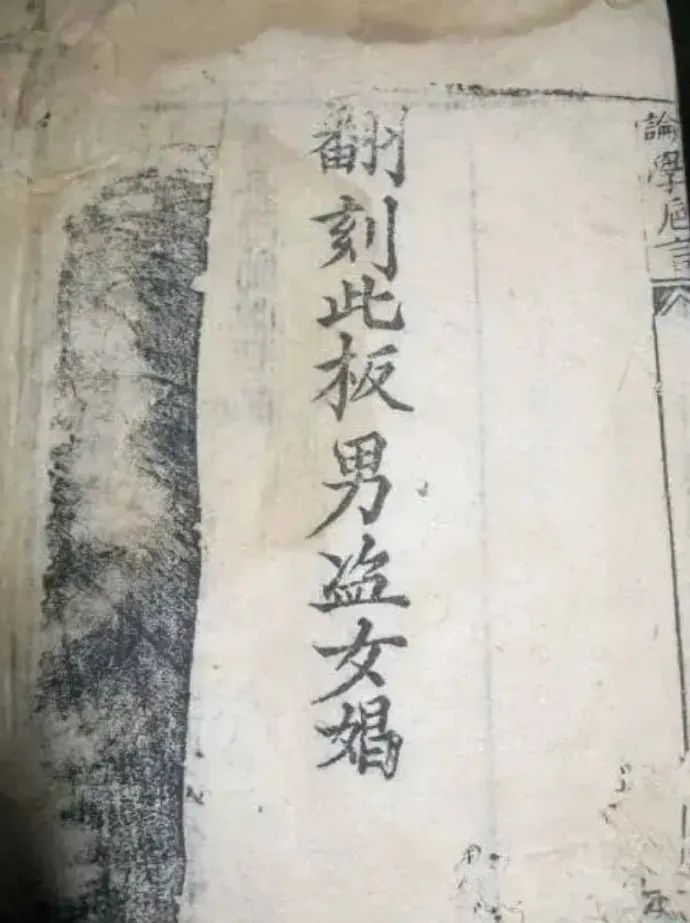 論學
翻刻此板男盗女娼